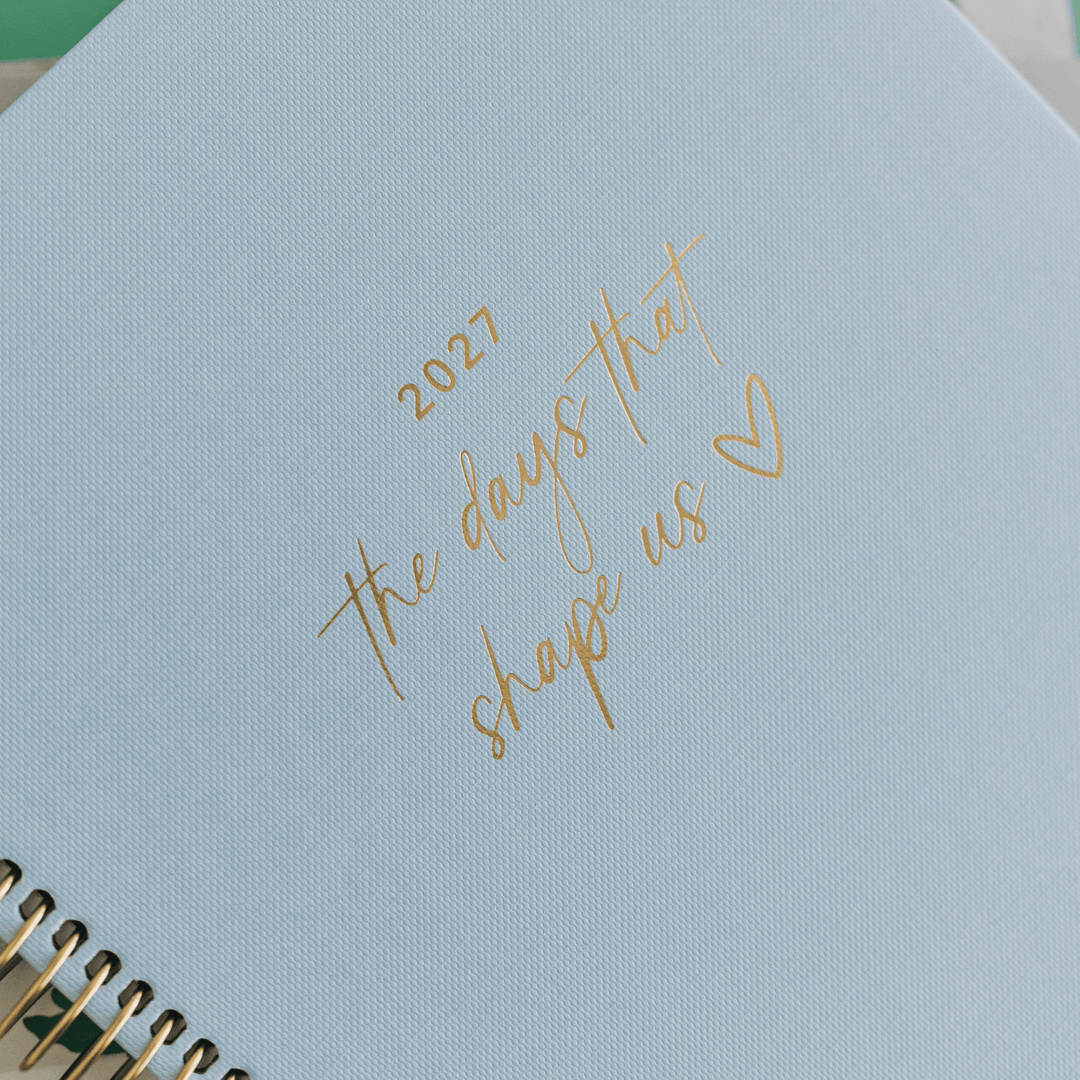 2027
the days that
shape us ♡